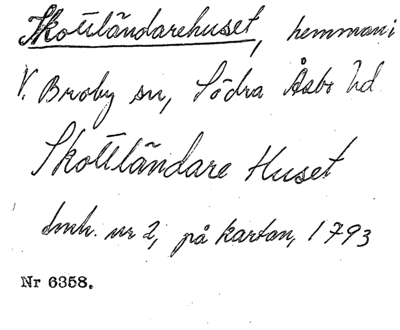 Skottländarehuset, hemman i
V. Broby sn, Södra Åsbo hd
Skottländare Huset
nr 2, på kartan, 1793
Nr 6358.